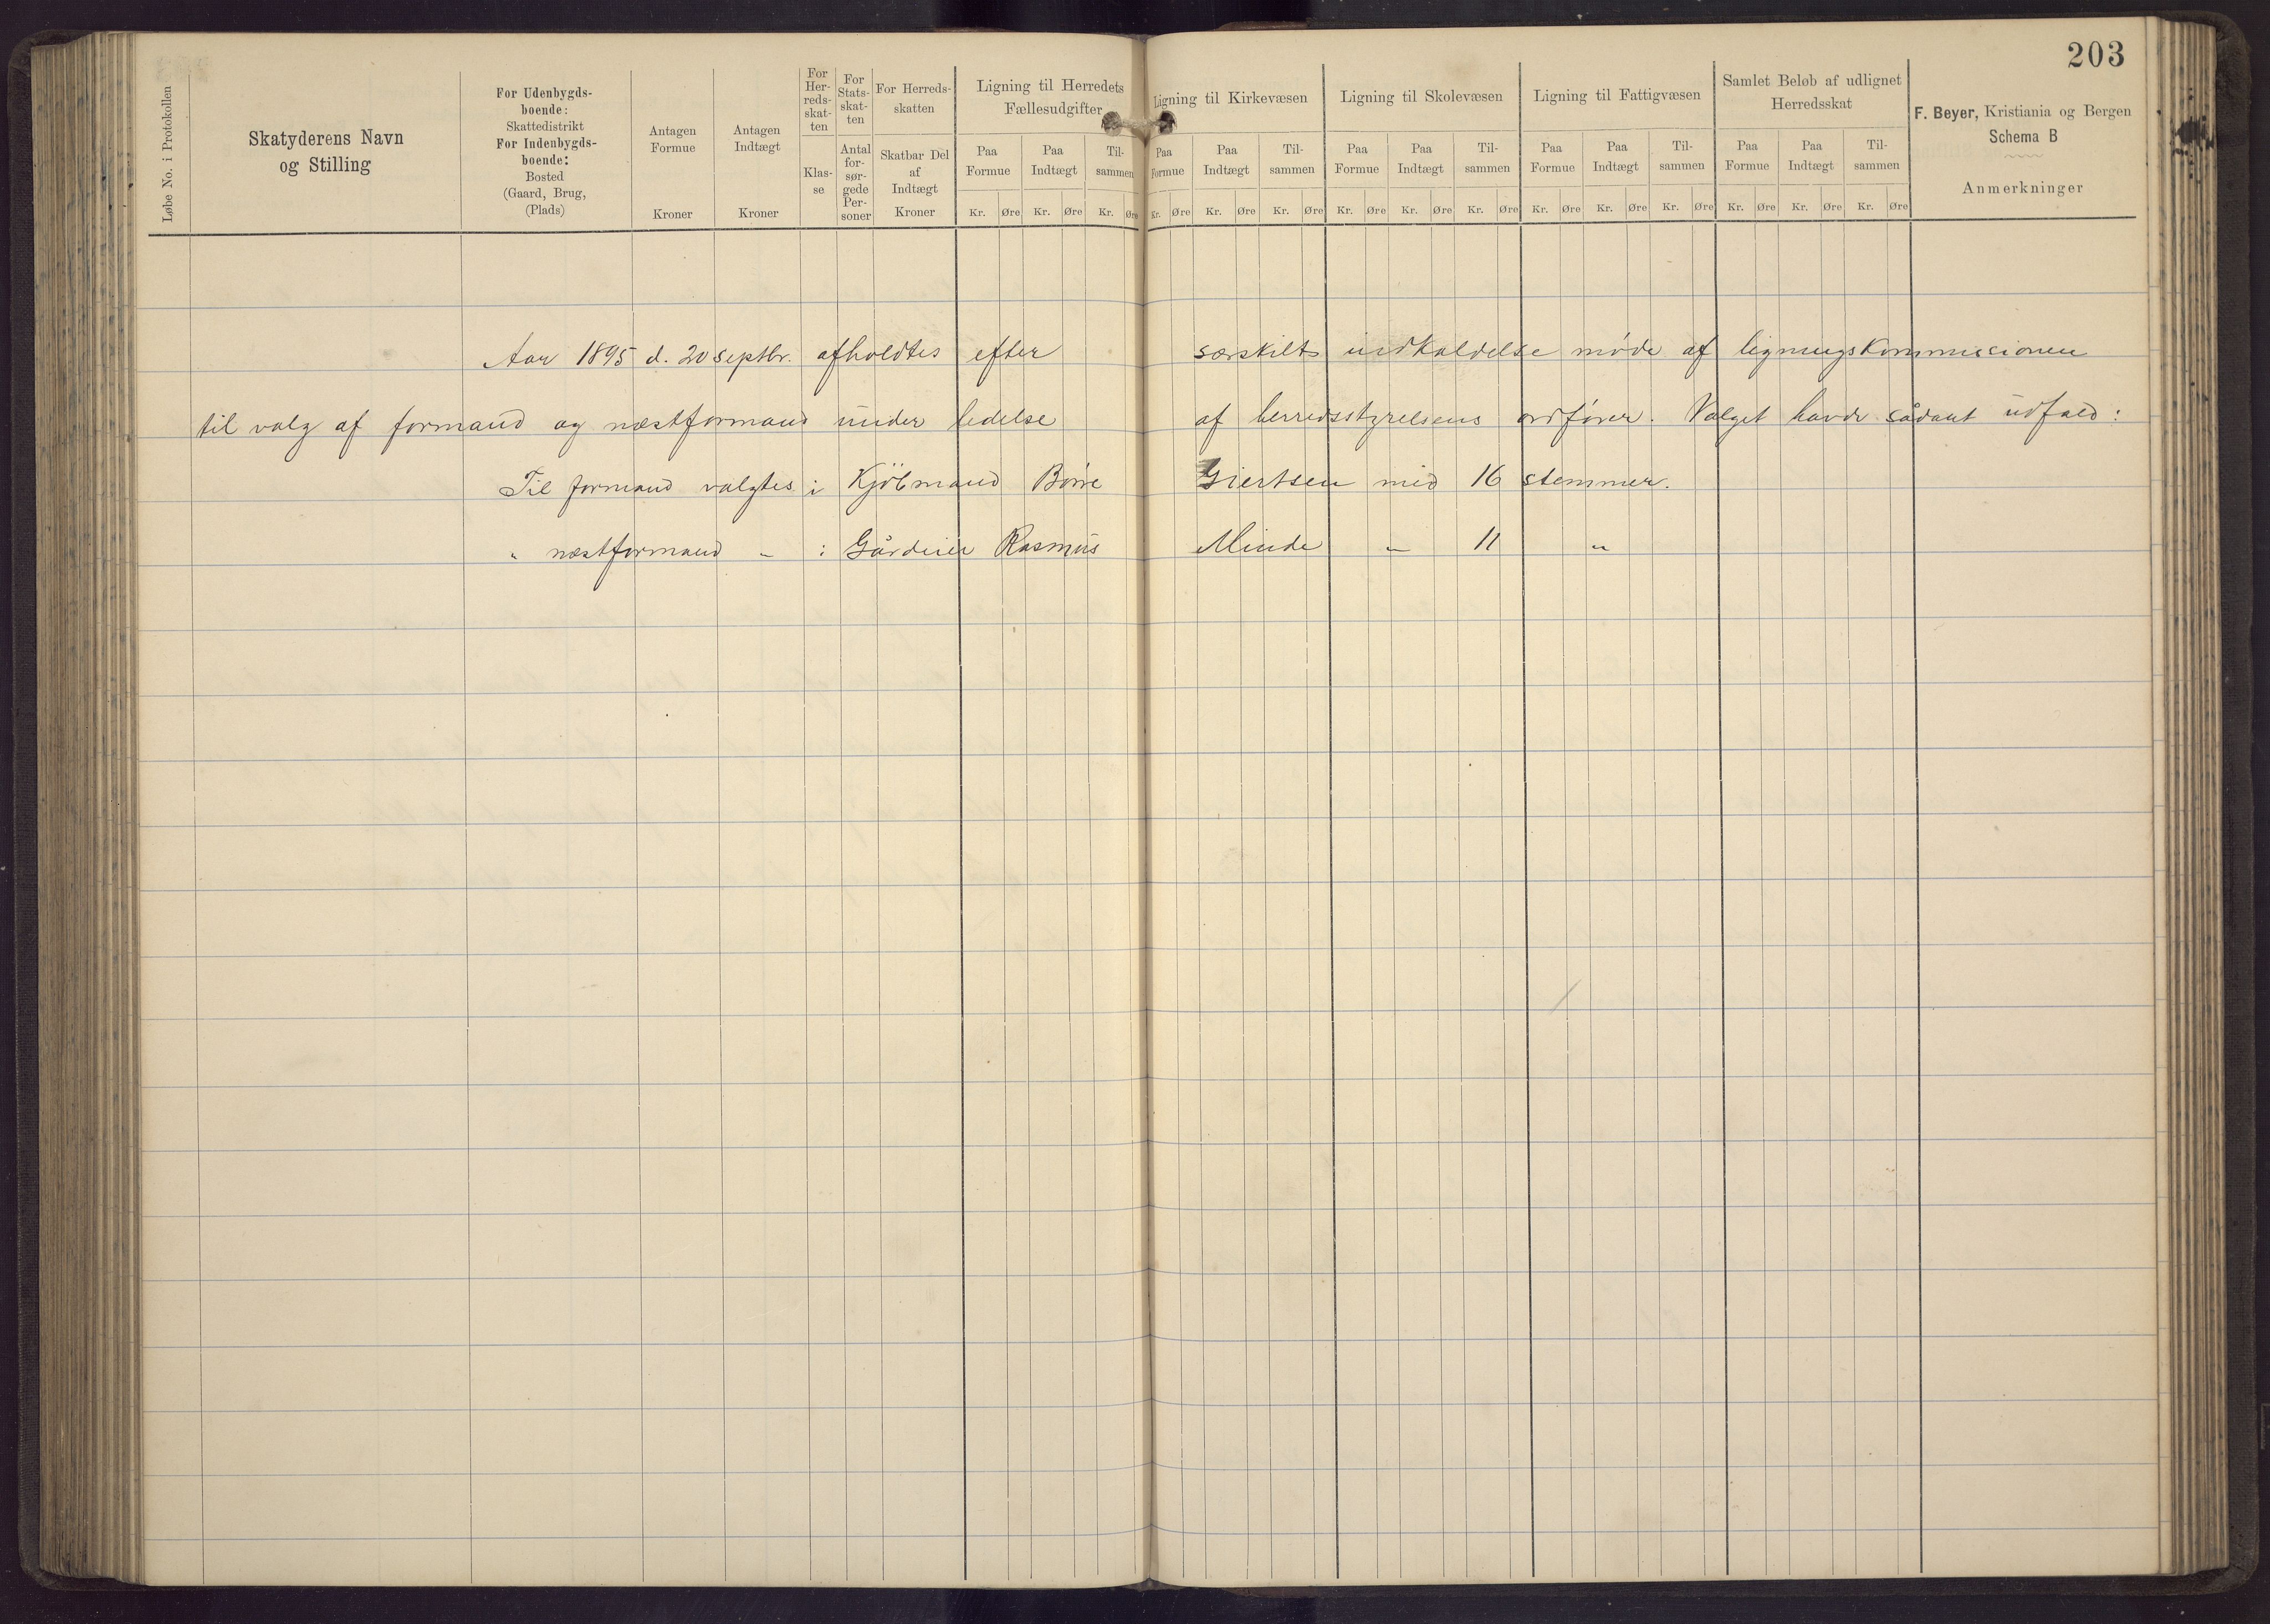 203
Løbe No. i Protokollen
Skatyderens Navn
og Stilling
For Udenbygds-
boende:
Skattedistrikt
For Indenbygds-
boende:
Bosted
(Gaard, Brug,
(Plads)
Antagen
Formue
Kroner
Antagen
Indtægt
Kroner
For
Her-
reds-
skat-
ten
Klas-
se
For
Stats-
skat-
ten
Antal
for-
sør-
gede
Per-
soner
For Herreds-
skatten
Skatbar Del
af
Indtægt
Kroner
Ligning til Herredets
Fællesudgifter
Paa Formue Paa Indtægt Til- sammen
Kr. Øre Kr. Øre Kr. Øre
Ligning til Kirkevæsen
Paa Formue Paa Indtægt Til- sammen
Kr. Øre Kr. Øre Kr. Øre
Ligning til Skolevæsen
Paa Formue Paa Indtægt Til- sammen
Kr. Øre Kr. Øre Kr. Øre
Ligning til Fattigvæsen
Paa Formue Paa Indtægt Til- sammen
Kr. Øre Kr. Øre Kr. Øre
Samlet Beløb af udlignet
Herredsskat
Paa Formue Paa Indtægt Til- sammen
Kr. Øre Kr. Øre Kr. Øre
F. Beyer, Kristiania og Bergen
Schema B
Anmerkninger
Aar 1895 d. 20 septbr. afholdtes efter særskilt indkaldelse møde af ligningskommiscionen
til valg af formand og næstformand under ledelse af herredsstyrelsens ordfører. Valget havde sådant udfald:
Til formand valgtes : Kjöbmand Børre Giertsen med 16 stemmer.
" næstformand " : Gårdeier Rasmus Minde " 11 "